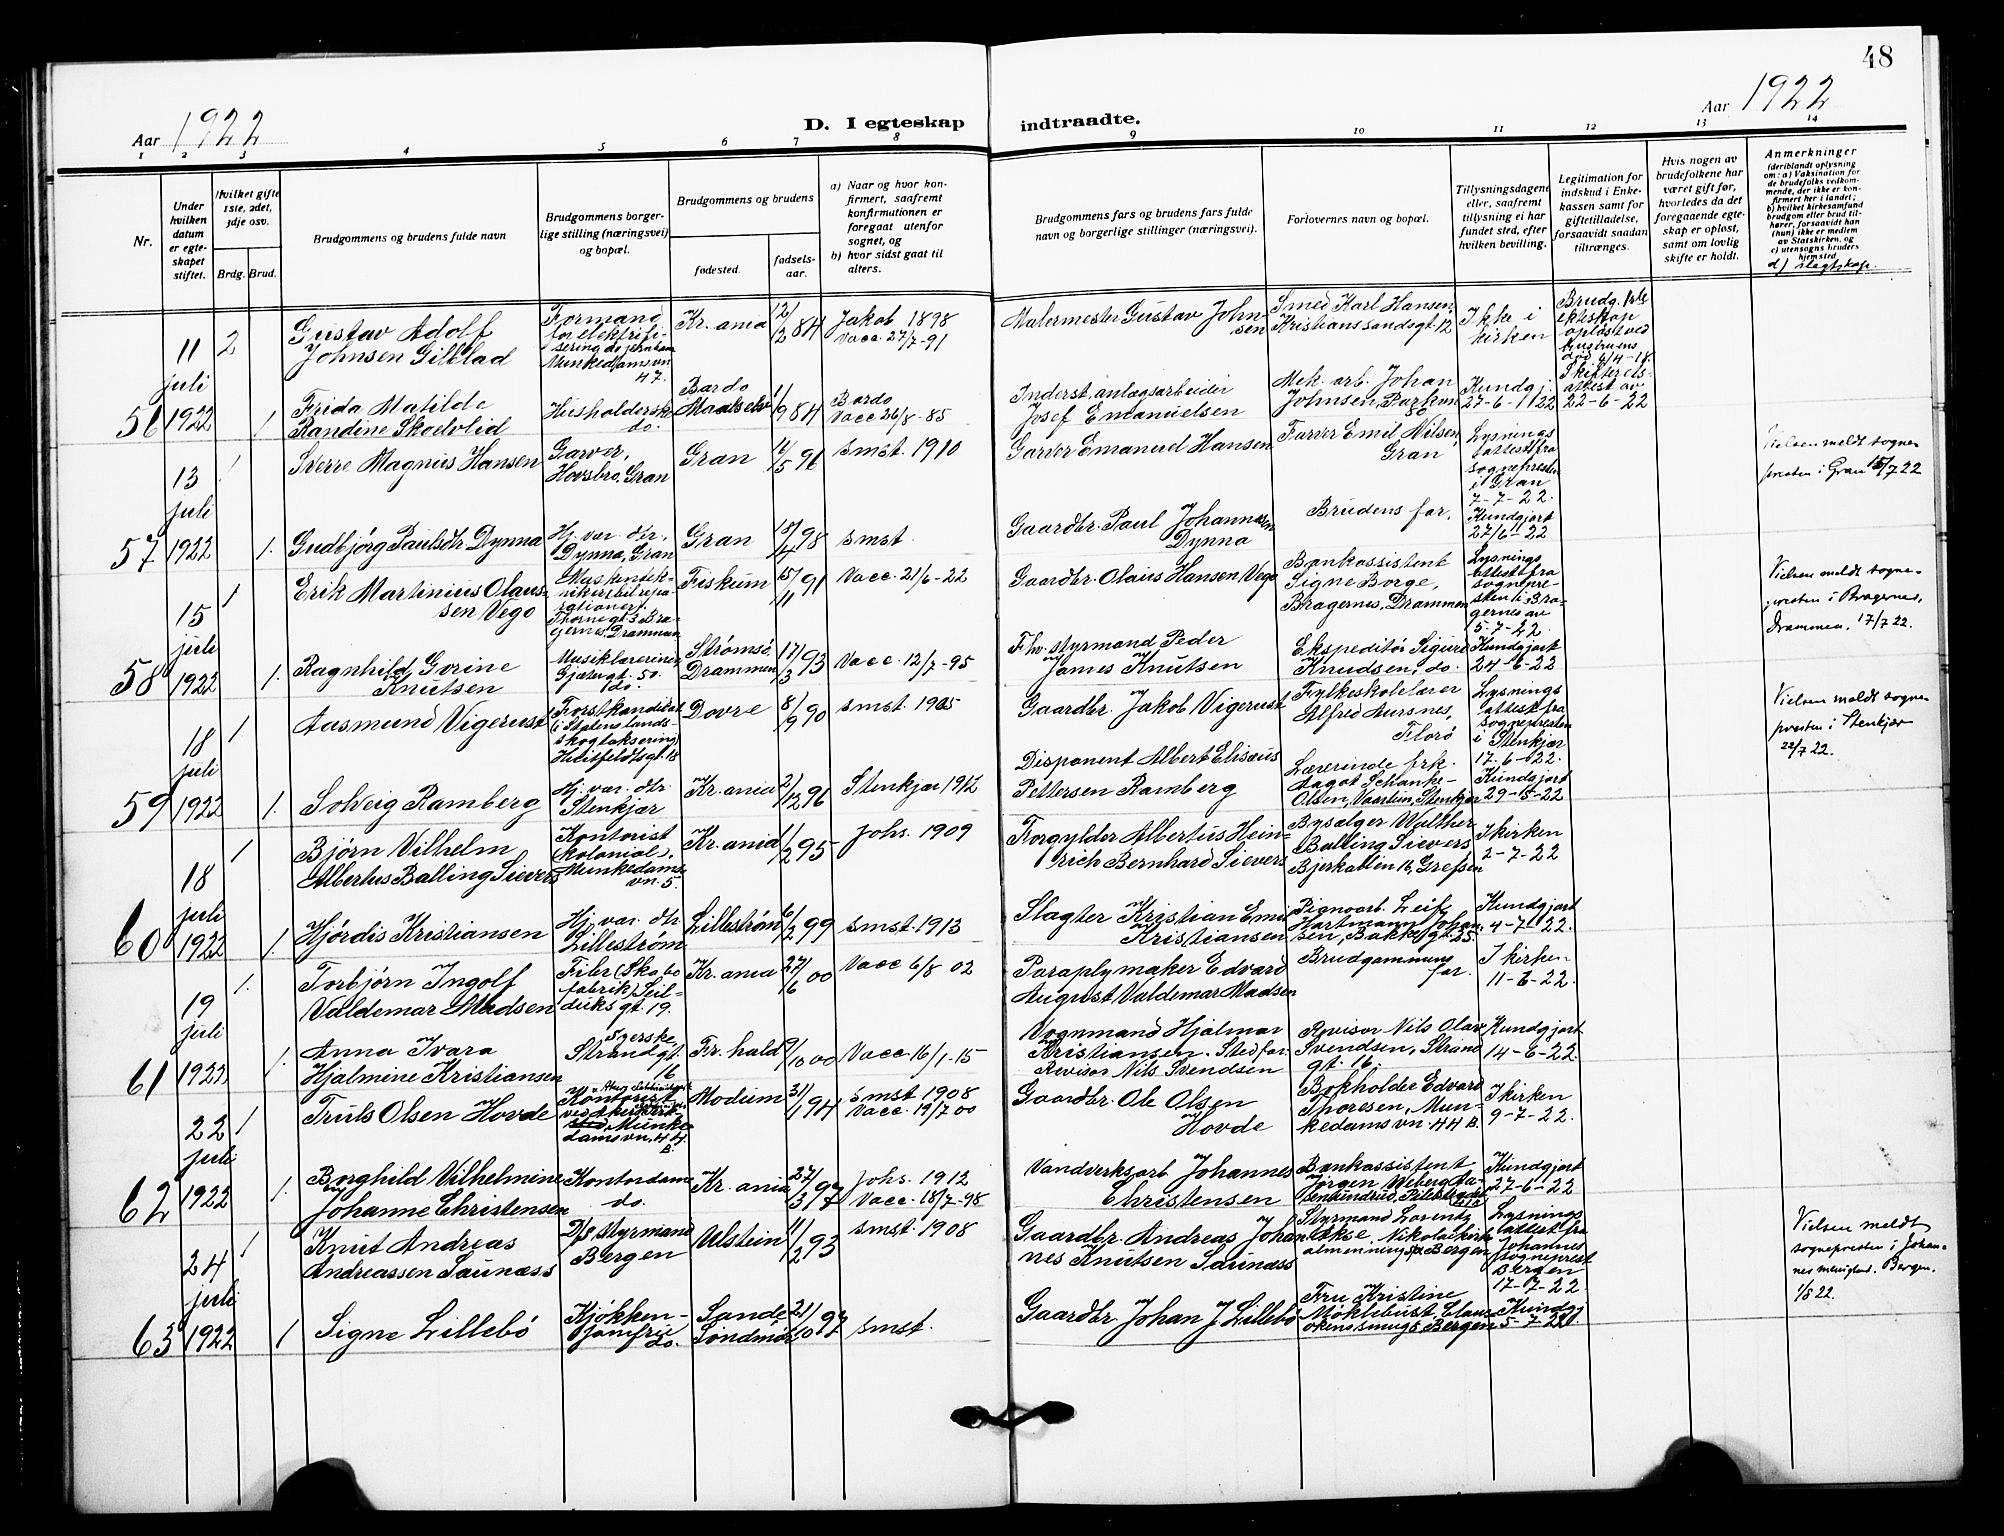 48
Aar 1922
D. I egteskap indtraadte.
Aar 1922
1 2 3 4 5 6 7 8 9 10 11 12 13 14
Nr.
Under hvilken datum er egteskapet stiftet.
Hvilket gifte 1ste, 2det, 3dje osv.
Brdg. Brud.
Brudgommens og brudens fulde navn
Brudgommens borgerlige stilling (næringsvei) og bopæl.
Brudgommens og brudens
fødested.
fødselsaar.
a) Naar og hvor konfirmert, saafremt konfirmationen er foregaat utenfor sognet, og
b) hvor sidst gaat til alters.
Brudgommens fars og brudens fars fulde navn og borgerlige stillinger (næringsvei).
Forlovernes navn og bopæl.
Tillysningsdagene eller, saafremt tillysning ei har fundet sted, efter hvilken bevilling.
Legitimation for indskud i Enkekassen samt for giftetilladelse, forsaavidt saadan tiltrænges.
Hvis nogen av brudefolkene har været gift før, hvorledes da det foregaaende egteskap er opløst, samt om lovlig skifte er holdt.
Anmerkninger
(deriblandt oplysning om: a) Vaksination for de brudefolks vedkommende, der ikke er konfirmert her i landet; b) hvilket kirkesamfund brudgom eller brud tilhører, forsaavidt han (hun) ikke er medlem av Statskirken, og c) utensogns bruders hjemsted
d) slegtskap.
56 11 juli 1922
2
Gustav Adolf Johnsen Gilblad
Formand for elektrifisering av jernban Munkedamsvn 47.
Kr.ania
12/2 84
Jakob 1898
Vacc. 27/7-91
Malermester Gustav Johnsen
Smed Karl Hansen, Kristianssandsgt. 12
Ikke i kirken
Brudg. 1ste ekteskap opløst ved hustruens død 6/4-18. Skifteretsattest av 22-6-22
1.
Frida Matilde Randine Skodvlid
Husholdersk. do.
Bardo Maalselv
1/9 84
Bardo
Vacc 26/8-85
Inderst, anlægsarbeider Josef Emanuelsen
Mek. arb. Johan Johnsen, Parkvn 80
Kundgj. 27-6-1122
57 13 juli 1922
1
Sverre Magnus Hansen
Garver, Hovsbro, Gran
Gran
16/5 96
smst. 1910
Garver Emanuel Hansen
Farver Emil Nilsen, Gran
Lysningsattest fra sognepresten i Gran 7-7-22.
Vielsen meldt sognepresten i Gran 15/7 22
1.
Gudbjørg Paulsdtr. Dynna
Hj. vær. dtr. Dynna, Gran
Gran
18/4 98
smst.
Gaardbr. Paul Johannesen Dynna
Brudens far.
Kundgjort 27/6-22
58 15 juli 1922
1
Erik Martinius Olaussen Vego
Fiskum
15/11 91
Vacc. 21/6-22
Gaardbr. Olaus Hansen Vego
Bankassistent Signe Borge, Bragernes, Drammen
Lysningsattest fra sognepresten i Bragernes av 5-7-22.
Vielsen meldt sognepresten i Bragernes, Drammen, 17/7 22.
1.
Ragnhild Gorine Knutsen
Musiklærerinde, Gjetergt. 50. do.
Strømsø, Drammen
17/3 93
Vacc. 12/7-95
Fhv. styrmand Peder James Knutsen
Ekspeditør Sigurd Knudsen, do.
Kundgjort 24-6-22
59 18 juli 1922
1
Aasmund Vigerust
Forstkandidat (i Statens landsskogtaksering) Huitfeldtsgt. 18
Dovre
8/9 90
smst 1905
Gaardbr. Jakob Vigerust
Fylkeskolelærer Alfred Aursnes, Florø
Lysningsattest fra sognepresten i Stenkjær 17-6-22.
Vielsen meldt sognepresten i Stenkjær 22/7 22.
1.
Solveig Ramberg
Hj. vær. dtr. Stenkjær
Kr.ania
2/12 96
Stenkjær 1912
Disponent Albert Elisæus Pettersen Ramberg
Lærerinde frk. Aagot Schanke-Olsen, Vaartun, Stenkjær
Kundgjort 29-5-22
60 18 juli 1922
1
Bjørn Vilhelm Albertus Balling Sievers
Kontorist (kolonial). Munkedamsvn. 5.
Kr.ania
1/2 95
Johs. 1909
Forgylder Albertus Heinrich Bernhard Sievers
Bysælger Walther Balling Sievers Bjerkallèn 16, Grefsen
I kirken 2-7-22
1.
Hjørdis Kristiansen
Hj. vær. dtr. Lillestrøm
Lillestrøm
6/2 99
smst. 1913
Slagter Kristian Emil Kristiansen
Pianoarb. Leif Hartmann Johansen, Bakkegt. 25.
Kundgjort 4-7-22.
61 19 juli 1922
1.
Torbjørn Ingolf Valdemar Madsen
Filer (Skabofabrik) Seilduksgt. 19.
Kr.ania
27/6 00
Vacc 6/8 02
Paraplymaker Edvard August Valdemar Madsen
Brudgommens far.
I kirken 11-6-22.
1.
Anna Ivara Hjalmine Kristiansen
Syerske, Strandgt. 16
Fr.hald
9/10 00
Vacc 16/1-15
Vognmand Hjalmar Kristiansen. Stedfar. Revisor Nils Svendsen
Revisor Nils Olav Svendsen, Strandgt. 16.
Kundgjort 14-6-22
62 22 juli 1922
1
Truls Olsen Hovde
Kontorist Munkedamsvn. 44 B.
Modum
31/1 94
smst 1908
Vacc. 19/7 00
Gaardbr. Ole Olsen Hovde
Bokholder Edvard Thoresen, Munkedamsvn. 44 B.
I kirken 9-7-22.
1.
Borghild Vilhelmine Johanne Christensen
Kontordame do.
Kr.ania
27/3 97
Johs. 1912
Vacc. 18/7-98
Vandverksarb. Johannes Christensen
Bankassistent Jørgen Weberg
Kundgjort 27-6-22
63 24 juli 1922
1
Knut Andreas Andreassen Saunæss
D/s Styrmand Bergen
Ulstein
11/2 93
smst. 1908
Gaardbr. Andreas Johannes Knutsen Saunæss
Styrmand Lorentz Akse, Nikolaikirkealmenning Bergen
Lysningsattest fra Johannes sogneprest Bergen 17-7-22.
Vielsen meldt sognepresten i Johannes menighed. Bergen. 1/8 22.
1
Signe Lillebø
Kjøkkenjomfru do.
Sande Søndmør
21/10 97
smst.
Gaardbr. Johan J Lillebø
Fru Kristine Møklebust, Bergen
Kundgj. 5-7-22